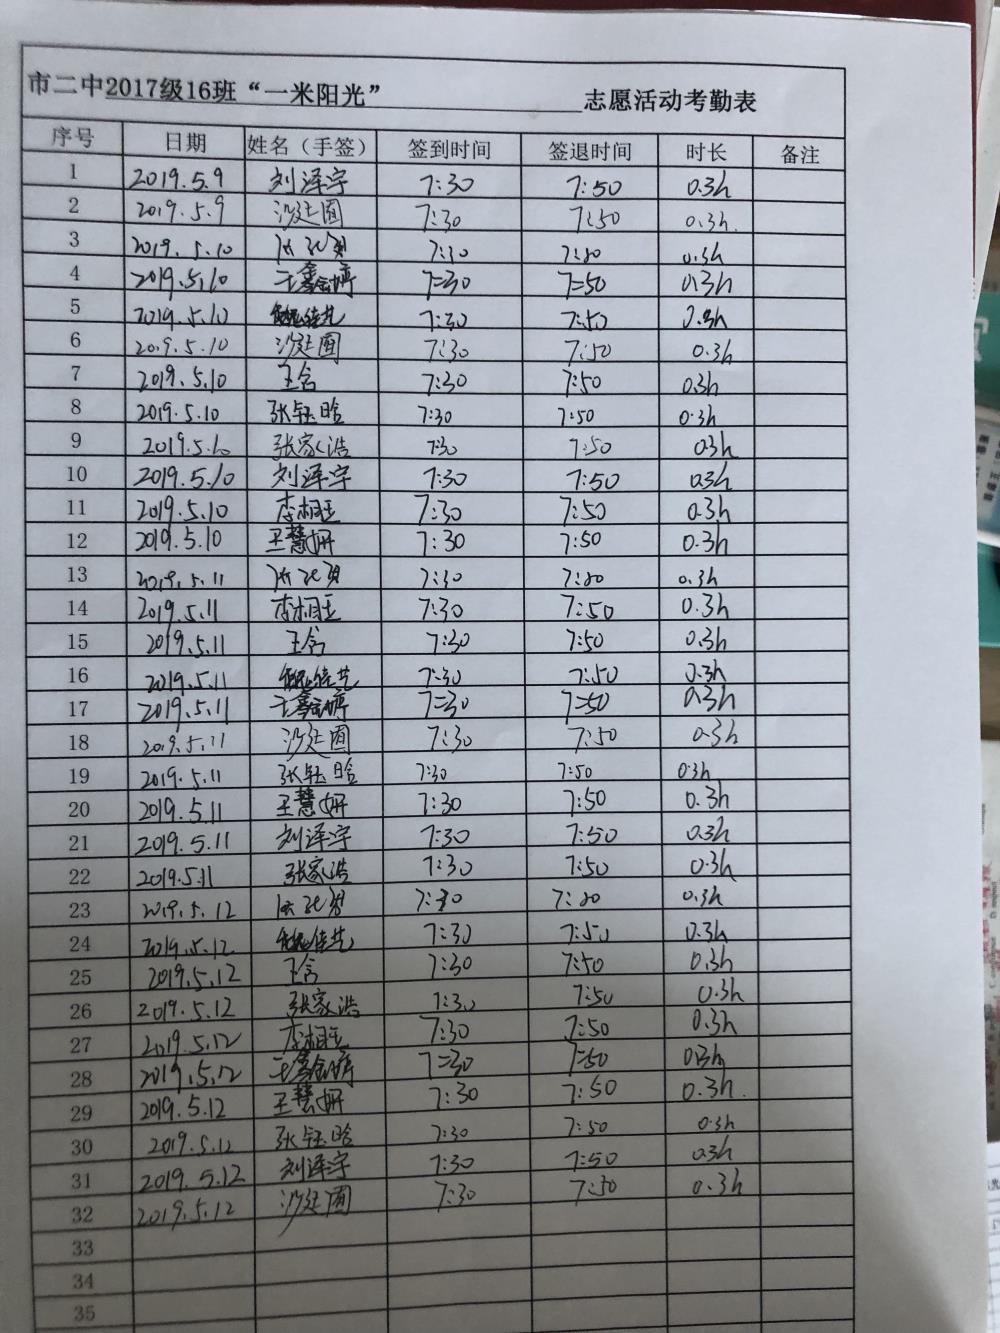 市二中2017级16班“一米阳光” 志愿活动考勤表
序号 日期 姓名（手签） 签到时间 签退时间 时长 备注
1 2019.5.9 刘泽宇 7:30 7:50 0.3h
2 2019.5.9 沙廷圄 7:30 7:50 0.3h.
3 2019.5.10 7:30 7:50 0.3h
4 2019.5.10 王鑫婷 7=30 7=50 0.3h
5 2019.5.10 魏佳艺 7:30 7:50 0.3h
6 2019.5.10 沙廷圄 7:30 7:50 0.3h
7 2019.5.10 王含 7:30 7:50 0.3h
8 2019.5.10 张钰晗 7:30 7:50 0.3h
9 2019.5.10 张家浩 7:30 7:50 0.3h
10 2019.5.10 刘泽宇 7:30 7:50 0.3h
11 2019.5.10 李相旺 7:30 7:50 0.3h
12 2019.5.10 王慧妍 7:30 7:50 0.3h
13 2019.5.11 7:30 7:50 0.3h
14 2019.5.11 李相旺 7:30 7:50 0.3h
15 2019.5.11 王含 7:30 7:50 0.3h
16 2019.5.11 魏佳艺 7:30 7:50 0.3h
17 2019.5.11 王鑫婷 7=30 7=50 0.3h
18 2019.5.11 沙廷圄 7:30 7:50 0.3h
19 2019.5.11 张钰晗 7:30 7:50 0.3h
20 2019.5.11 王慧妍 7:30 7:50 0.3h
21 2019.5.11 刘泽宇 7:30 7:50 0.3h
22 2019.5.11 张家浩 7:30 7:50 0.3h
23 2019.5.12 7:30 7:50 0.3h
24 2019.5.12 魏佳艺 7:30 7:50 0.3h
25 2019.5.12 王含 7:30 7:50 0.3h
26 2019.5.12 张家浩 7:30 7:50 0.3h
27 2019.5.12 李相旺 7:30 7:50 0.3h
28 2019.5.12 王鑫婷 7=30 7=50 0.3h
29 2019.5.12 王慧妍 7:30 7:50 0.3h.
30 2019.5.12 张钰晗 7:30 7:50 0.3h
31 2019.5.12 刘泽宇 7:30 7:50 0.3h
32 2019.5.12 沙廷圄 7:30 7:50 0.3h
33
34
35